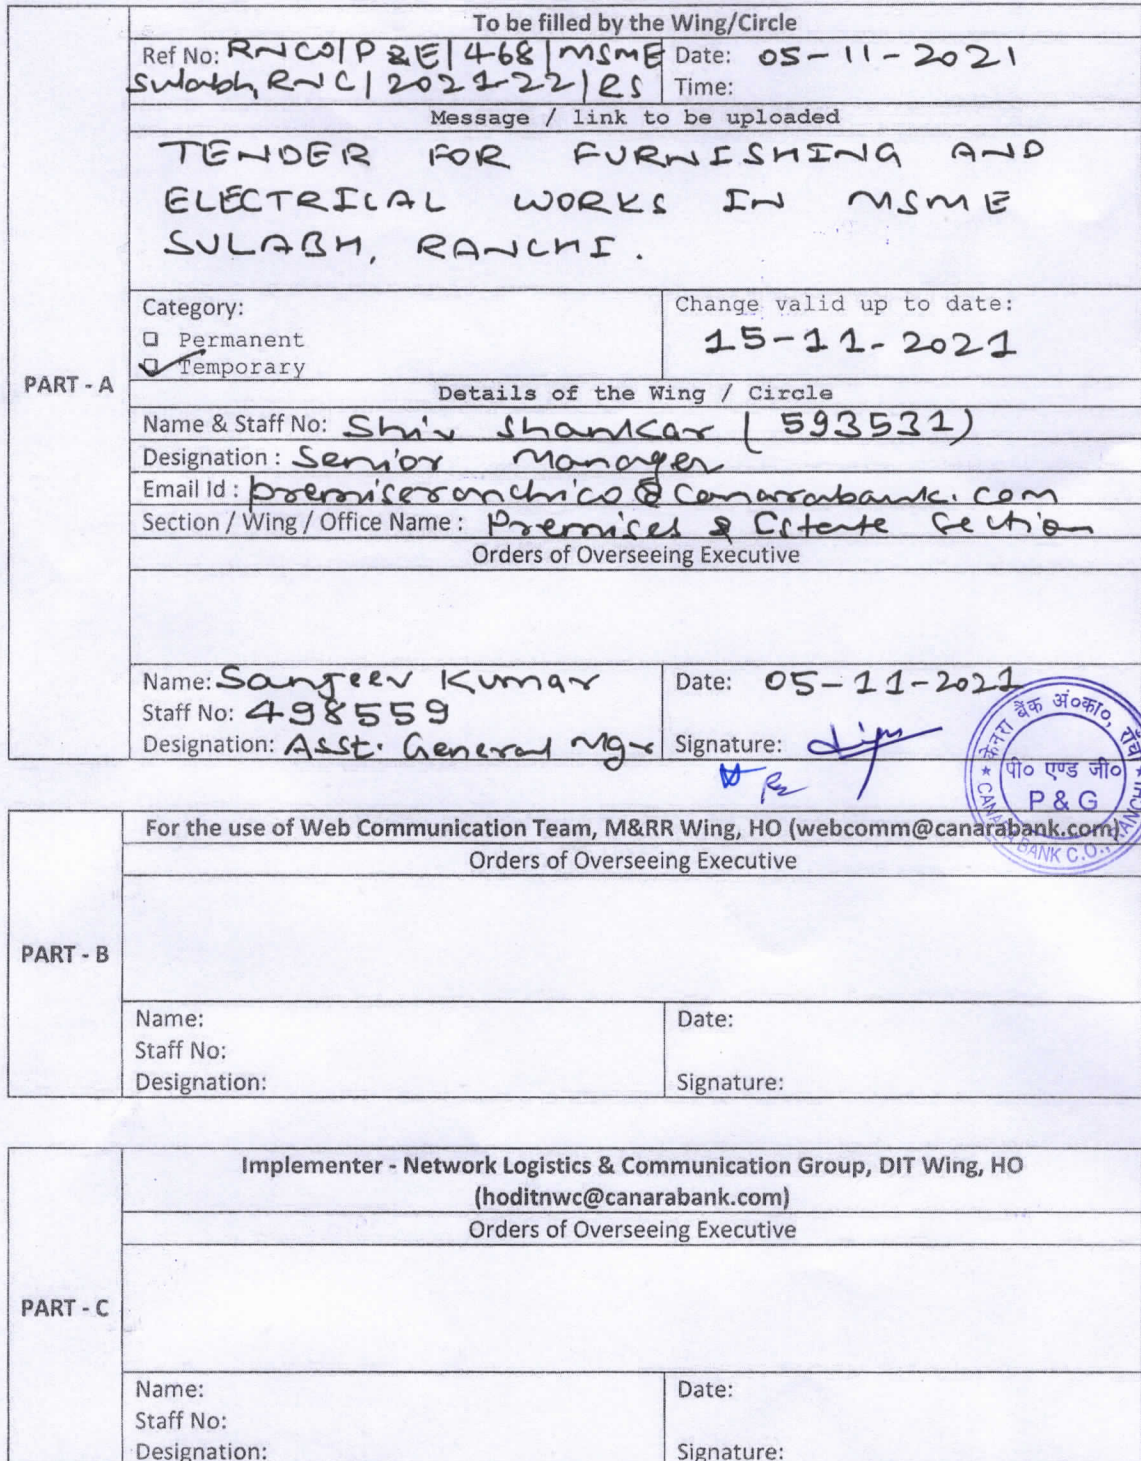 To be filled by the Wing/Circle
Ref No: RNCO|P&E|468|MSME
Sulabh, RNC|2021-22|RS
Date: 05-11-2021
Time:
Message / link to be uploaded
TENDER FOR FURNISHING AND
ELECTRICAL WORKS IN MSME
SULABH, RANCHI.
Category:
Permanent
Temporary
Change valid up to date:
15-11-2021
PART - A
Details of the Wing / Circle
Name & Staff No: Shiv Shankar (593531)
Designation : Senior Manager
Email Id : premiseranchico@canarabank.com
Section / Wing / Office Name : Premises & Estate Section
Orders of Overseeing Executive
Name: Sanjeev Kumar
Staff No: 498559
Designation: Asst. General Mgr
Date: 05-11-2021
Signature:
केनरा बैंक अं०का०, राँची
पी० एण्ड जी०
P & G
CANARA BANK C.O., RANCHI
For the use of Web Communication Team, M&RR Wing, HO (webcomm@canarabank.com)
Orders of Overseeing Executive
PART - B
Name:
Staff No:
Designation:
Date:
Signature:
Implementer - Network Logistics & Communication Group, DIT Wing, HO
(hoditnwc@canarabank.com)
Orders of Overseeing Executive
PART - C
Name:
Staff No:
Designation:
Date:
Signature: